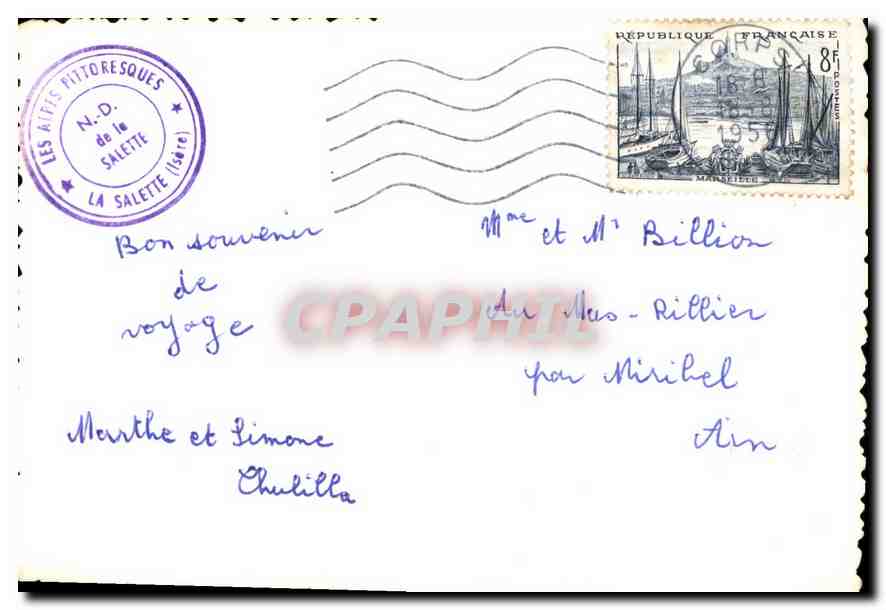 LES ALPES PITTORESQUES
N.-D.
de la
SALETTE
LA SALETTE (Isère)
RÉPUBLIQUE FRANÇAISE
8F
POSTES
MARSEILLE
CORPS
16-8
1956
Bon souvenir
de
voyage
Marthe et Simone
Chulilla
Mme et Mr Billion
Au Mas-Rillier
par Miribel
Ain
CPAPHIL